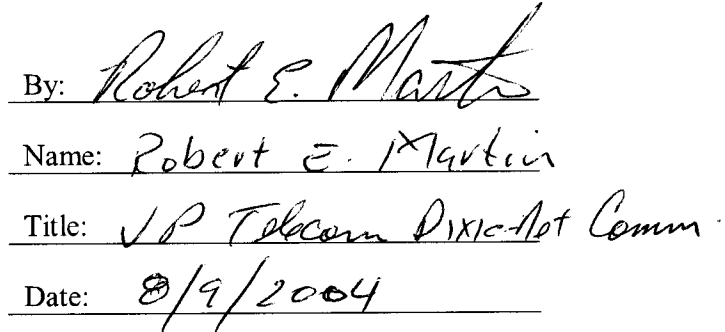 By: Robert E. Martin
Name: Robert E. Martin
Title: VP Telecom Dixie-Net Comm.
Date: 8/9/2004